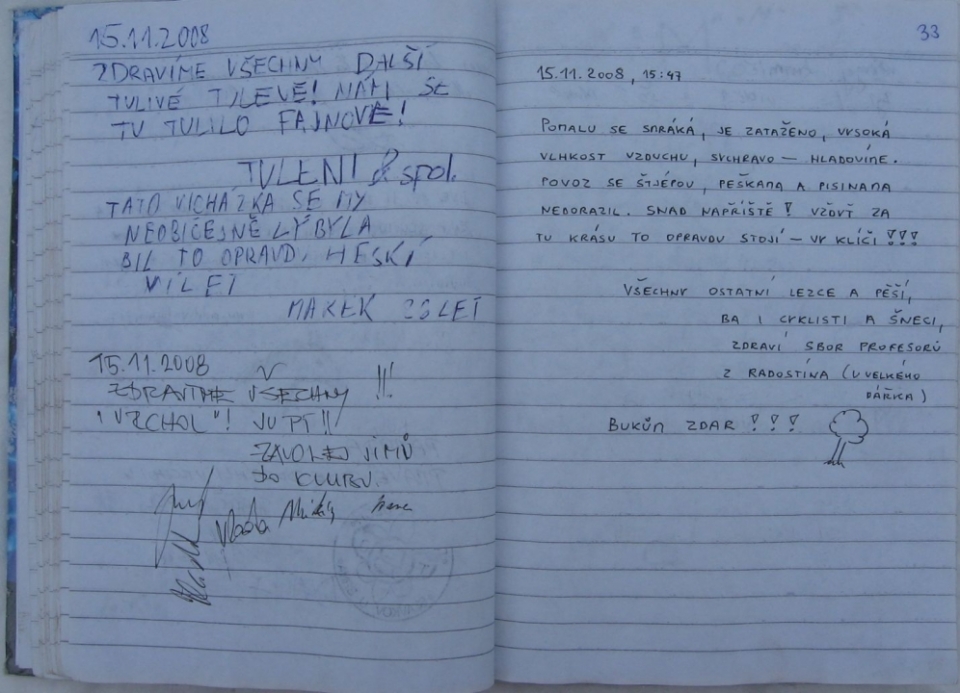 15.11.2008
ZDRAVÍME VŠECHNY DALŠÍ
TULIVÉ TULENĚ! NÁM SE
TU TULILO FAJNOVĚ!
TULENI & spol.
TATO VICHÁZKA SE MY
NEOBIČEJNĚ LÝBYLA
BIL TO OPRAVD. HESKÍ
VÍLET
MAREK
15.11.2008
ZDRAVÍME VŠECHNY !!!
"VRCHOL"! JUPÍ!!
DO KLUBU.
Vlada
33
15.11.2008, 15:47
POMALU SE SMRÁKÁ, JE ZATAŽENO, VYSOKÁ
VLHKOST VZDUCHU, SYCHRAVO – HLADOVÍME.
POVOZ SE ŠTJÉPOU, PEŠKAMA A PISINAMA
NEDORAZIL. SNAD NAPŘIŠTĚ! VŽDYŤ ZA
TU KRÁSU TO OPRAVDU STOJÍ – VY KLÍČI!!!
VŠECHNY OSTATNÍ LEZCE A PĚŠÍ,
BA I CYKLISTI A ŠNECI,
ZDRAVÍ SBOR PROFESORŮ
Z RADOSTÍNA (U VELKÉHO
DÁŘKA)
BUKŮM ZDAR !!!